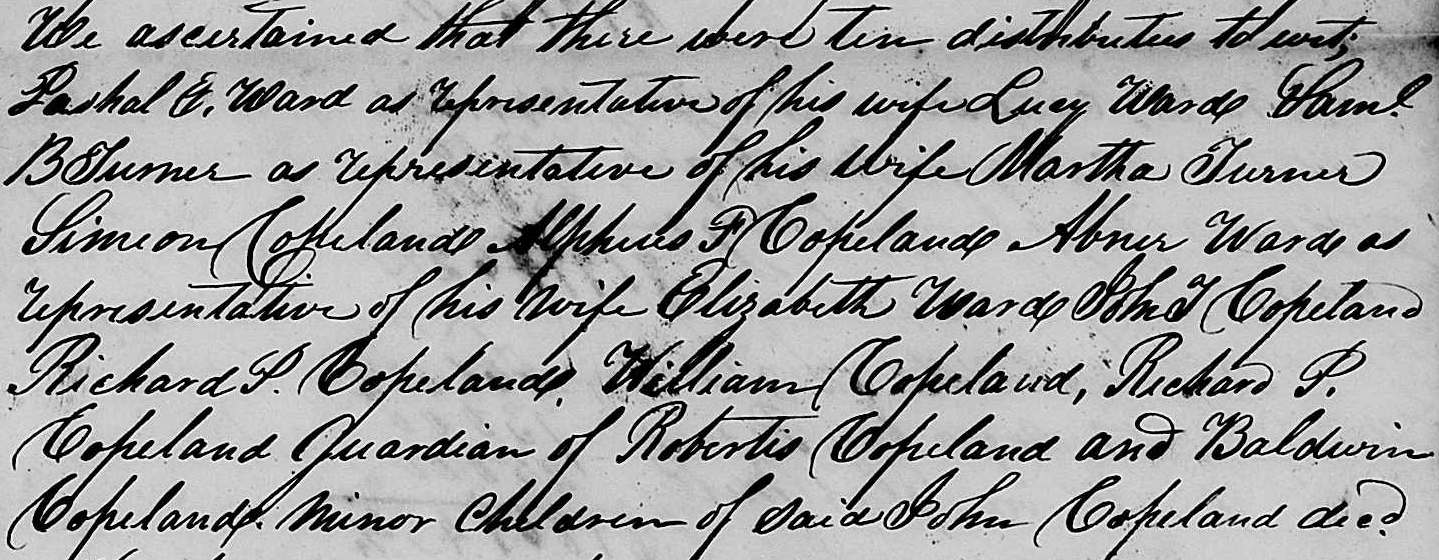 We ascertained that there were ten distributees to wit;
Paskal E. Ward as representative of his wife Lucy Ward Saml.
B Turner as representative of his wife Martha Turner
Simeon Copeland Alpheus F Copeland Abner Ward as
representative of his wife Elizabeth Ward John T Copeland
Richard P. Copeland. William Copeland, Richard P.
Copeland Guardian of Robertis Copeland and Baldwin
Copeland. minor children of said John Copeland decd.